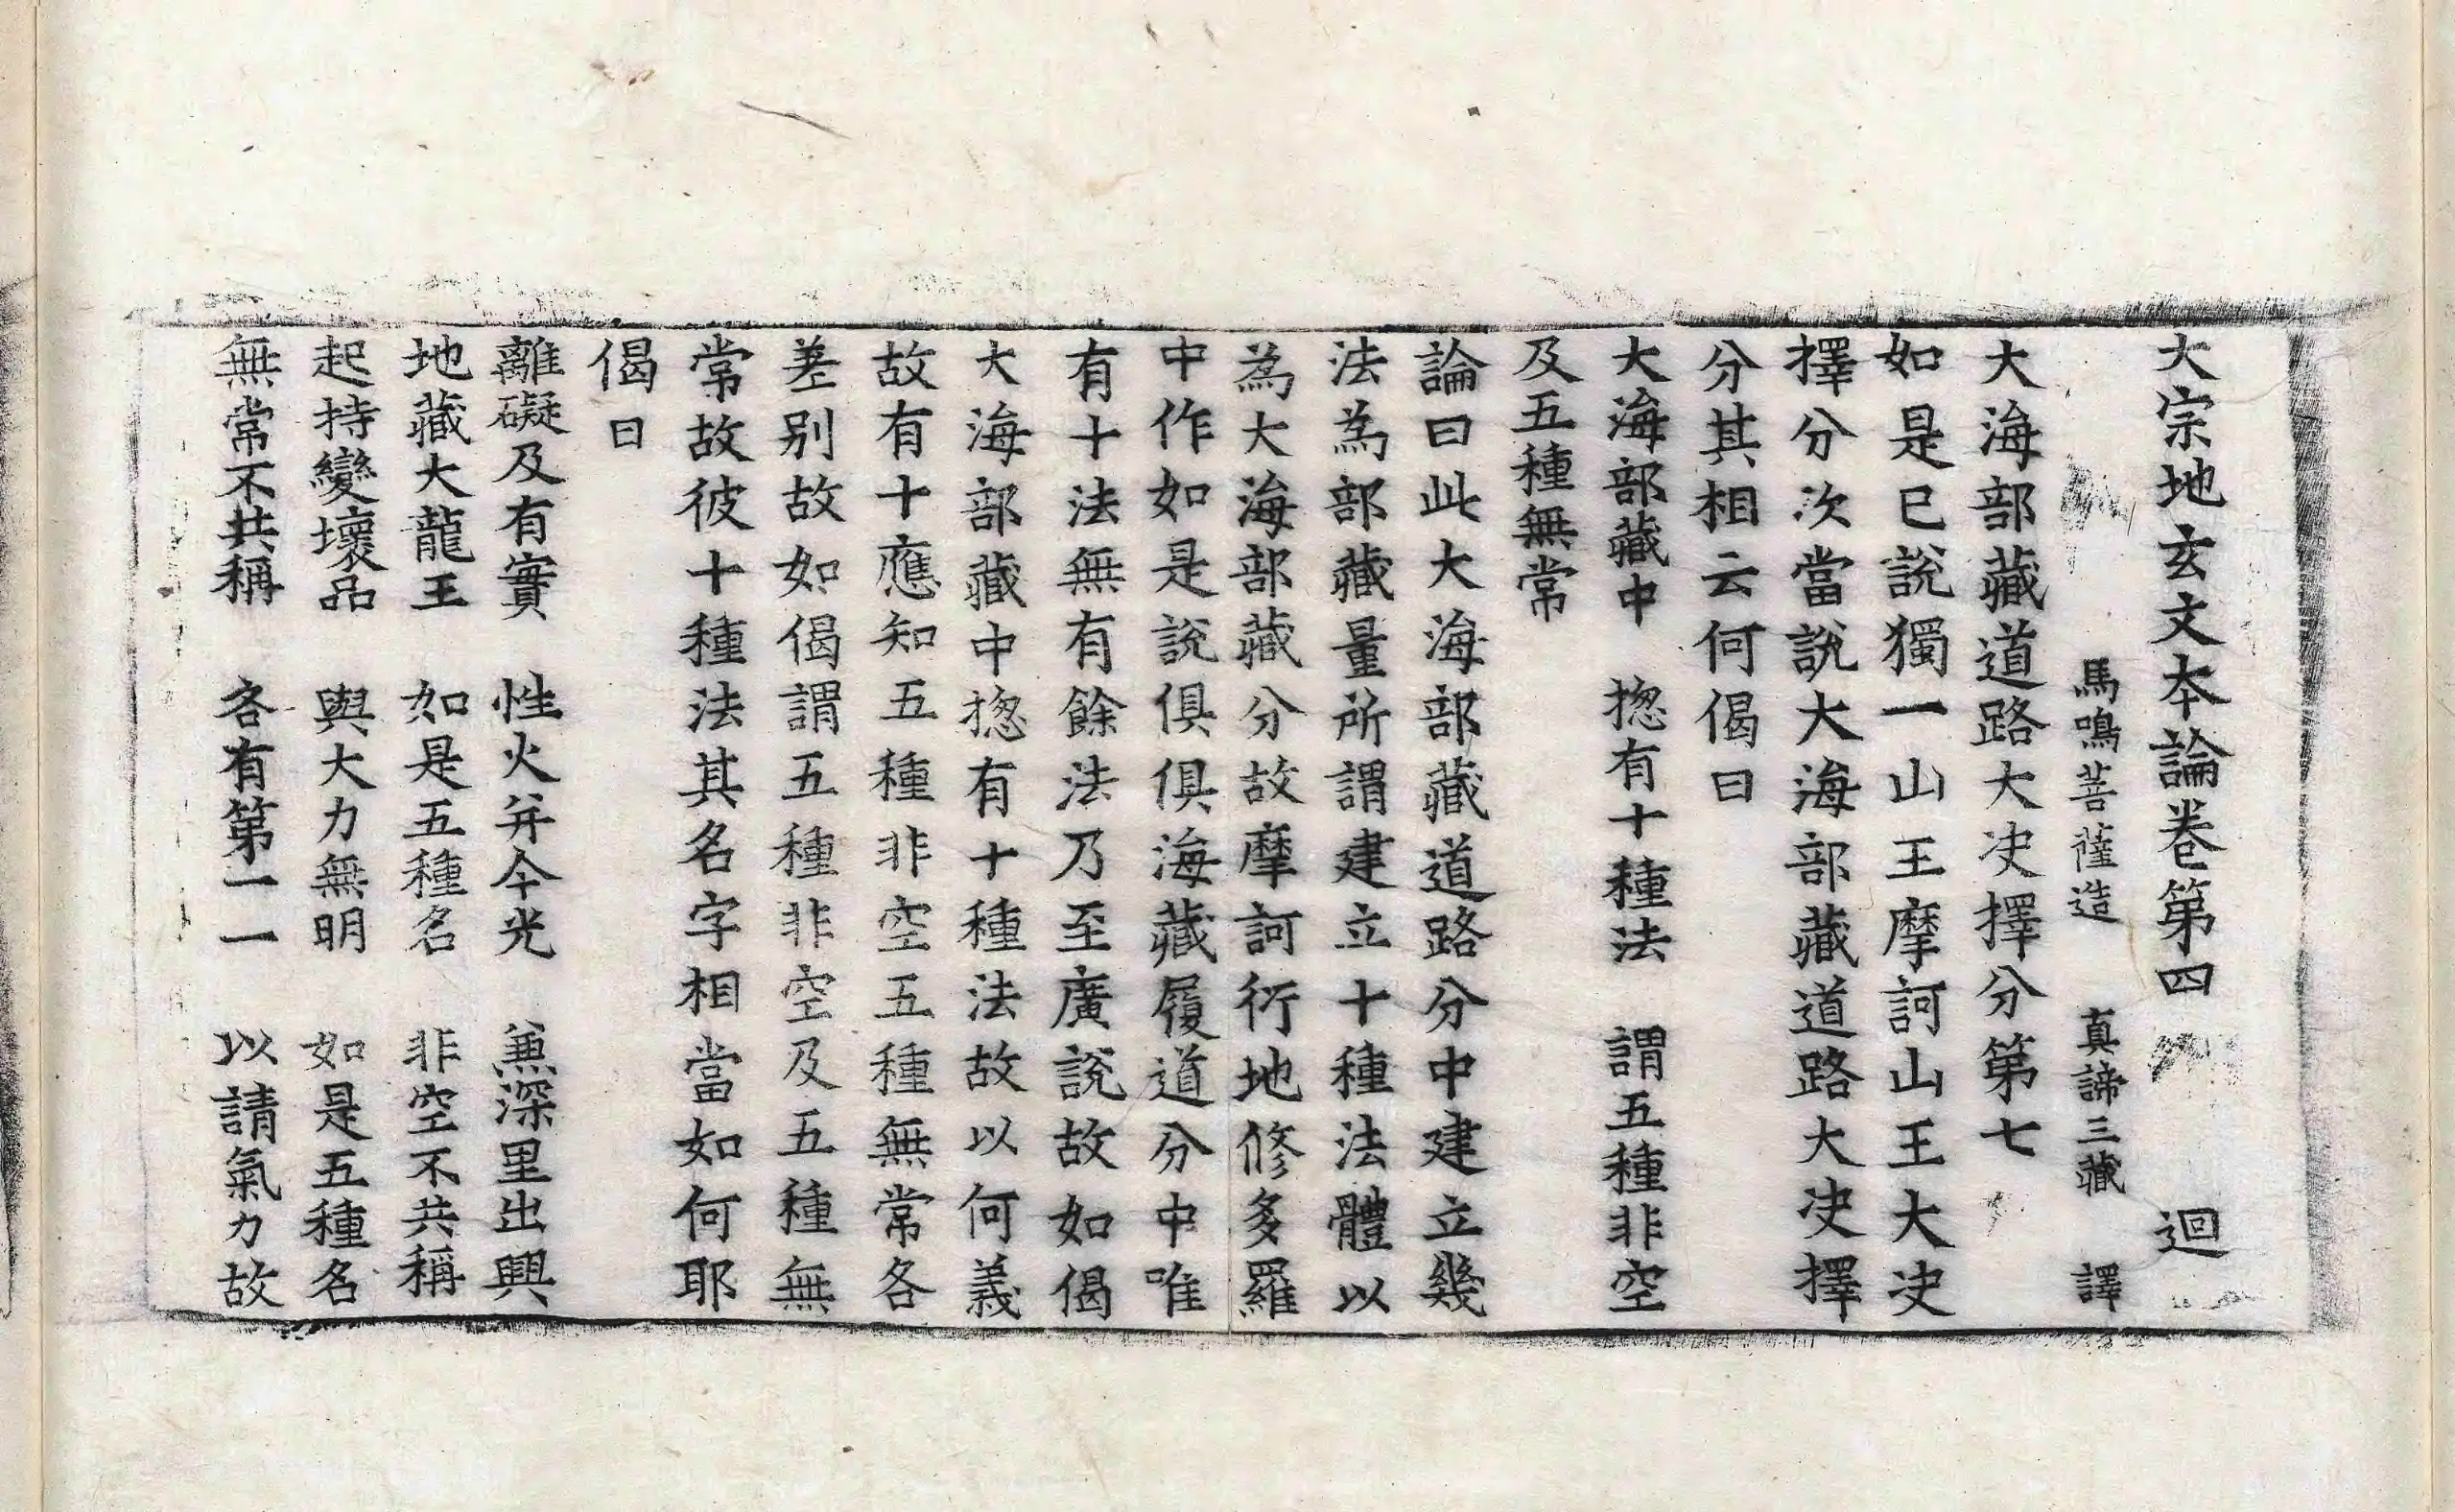 大宗地玄文本論卷第四　迴
馬鳴菩薩造　真諦三藏　譯
大海部藏道路大决擇分第七
如是已說獨一山王摩訶山王大决
擇分次當說大海部藏道路大决擇
分其相云何偈曰
大海部藏中　揔有十種法　謂五種非空
及五種無常
論曰此大海部藏道路分中建立幾
法為部藏量所謂建立十種法體以
為大海部藏分故摩訶衍地修多羅
中作如是說俱俱海藏履道分中唯
有十法無有餘法乃至廣說故如偈
大海部藏中揔有十種法故以何義
故有十應知五種非空五種無常各
差别故如偈謂五種非空及五種無
常故彼十種法其名字相當如何耶
偈曰
離礙及有實　性火并今光　兼深里出興
地藏大龍王　如是五種名　非空不共稱
起持變壞品　與大力無明　如是五種名
無常不共稱　各有第一一　以請氣力故